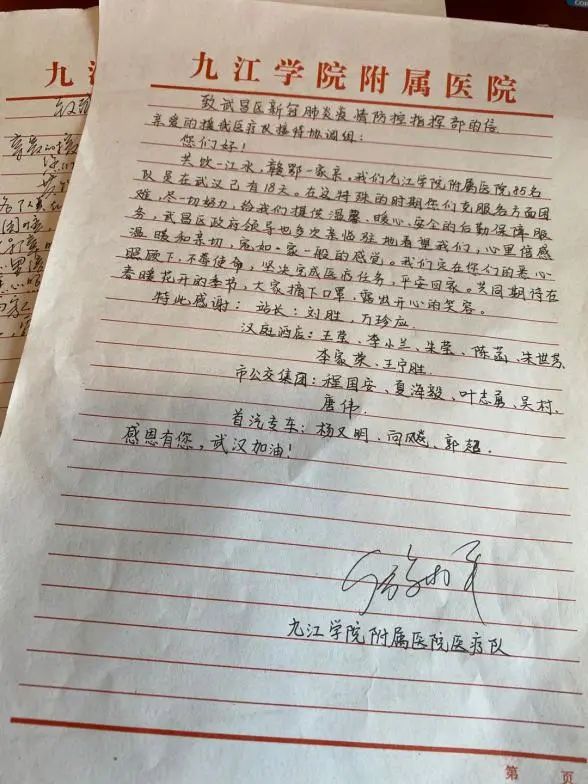 九江学院附属医院
致武昌区新冠肺炎疫情防控指挥部的信
亲爱的援我医疗队接待协调组：
您们好！
共饮一江水，赣鄂一家亲，我们九江学院附属医院85名
队员在武汉已有18天。在这特殊的时期您们克服各方面困
难，尽一切努力，给我们提供温馨、暖心、安全的后勤保障服
务，武昌区政府领导也多次亲临驻地看望我们，心里倍感
温暖和亲切，宛如一家一般的感觉。我们定在你们的悉心
照顾下，不辱使命，坚决完成医疗任务，平安回家。共同期待在
春暖花开的季节，大家摘下口罩，露出开心的笑容。
特此感谢：站长：刘胜，万珍应
汉庭酒店：王莹、李小兰、朱莹、陈菡、朱世芳、
李家荣、王宁胜
市公交集团：程国安、夏海毅、叶志勇、吴村、
唐伟
首汽专车：杨又明、向飚、郭超.
感恩有您，武汉加油！
九江学院附属医院医疗队
第 页
九江